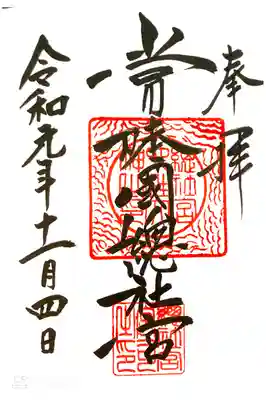 奉拝
常陸國總社宮
令和元年十一月四日